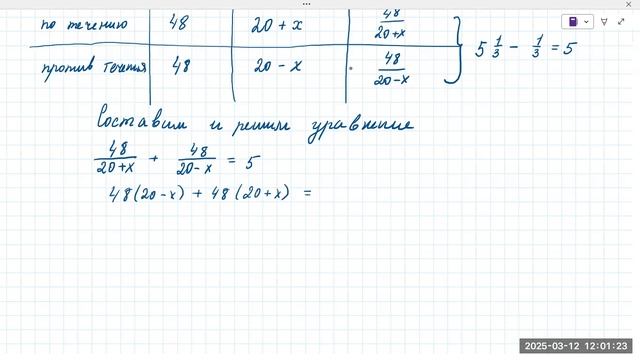 по течению 48 20 + x 48/(20+x)
5 1/3 - 1/3 = 5
против течения 48 20 - x 48/(20-x)
Составим и решим уравнение
48/(20+x) + 48/(20-x) = 5
48(20-x) + 48(20+x) =
2025-03-12 12:01:23